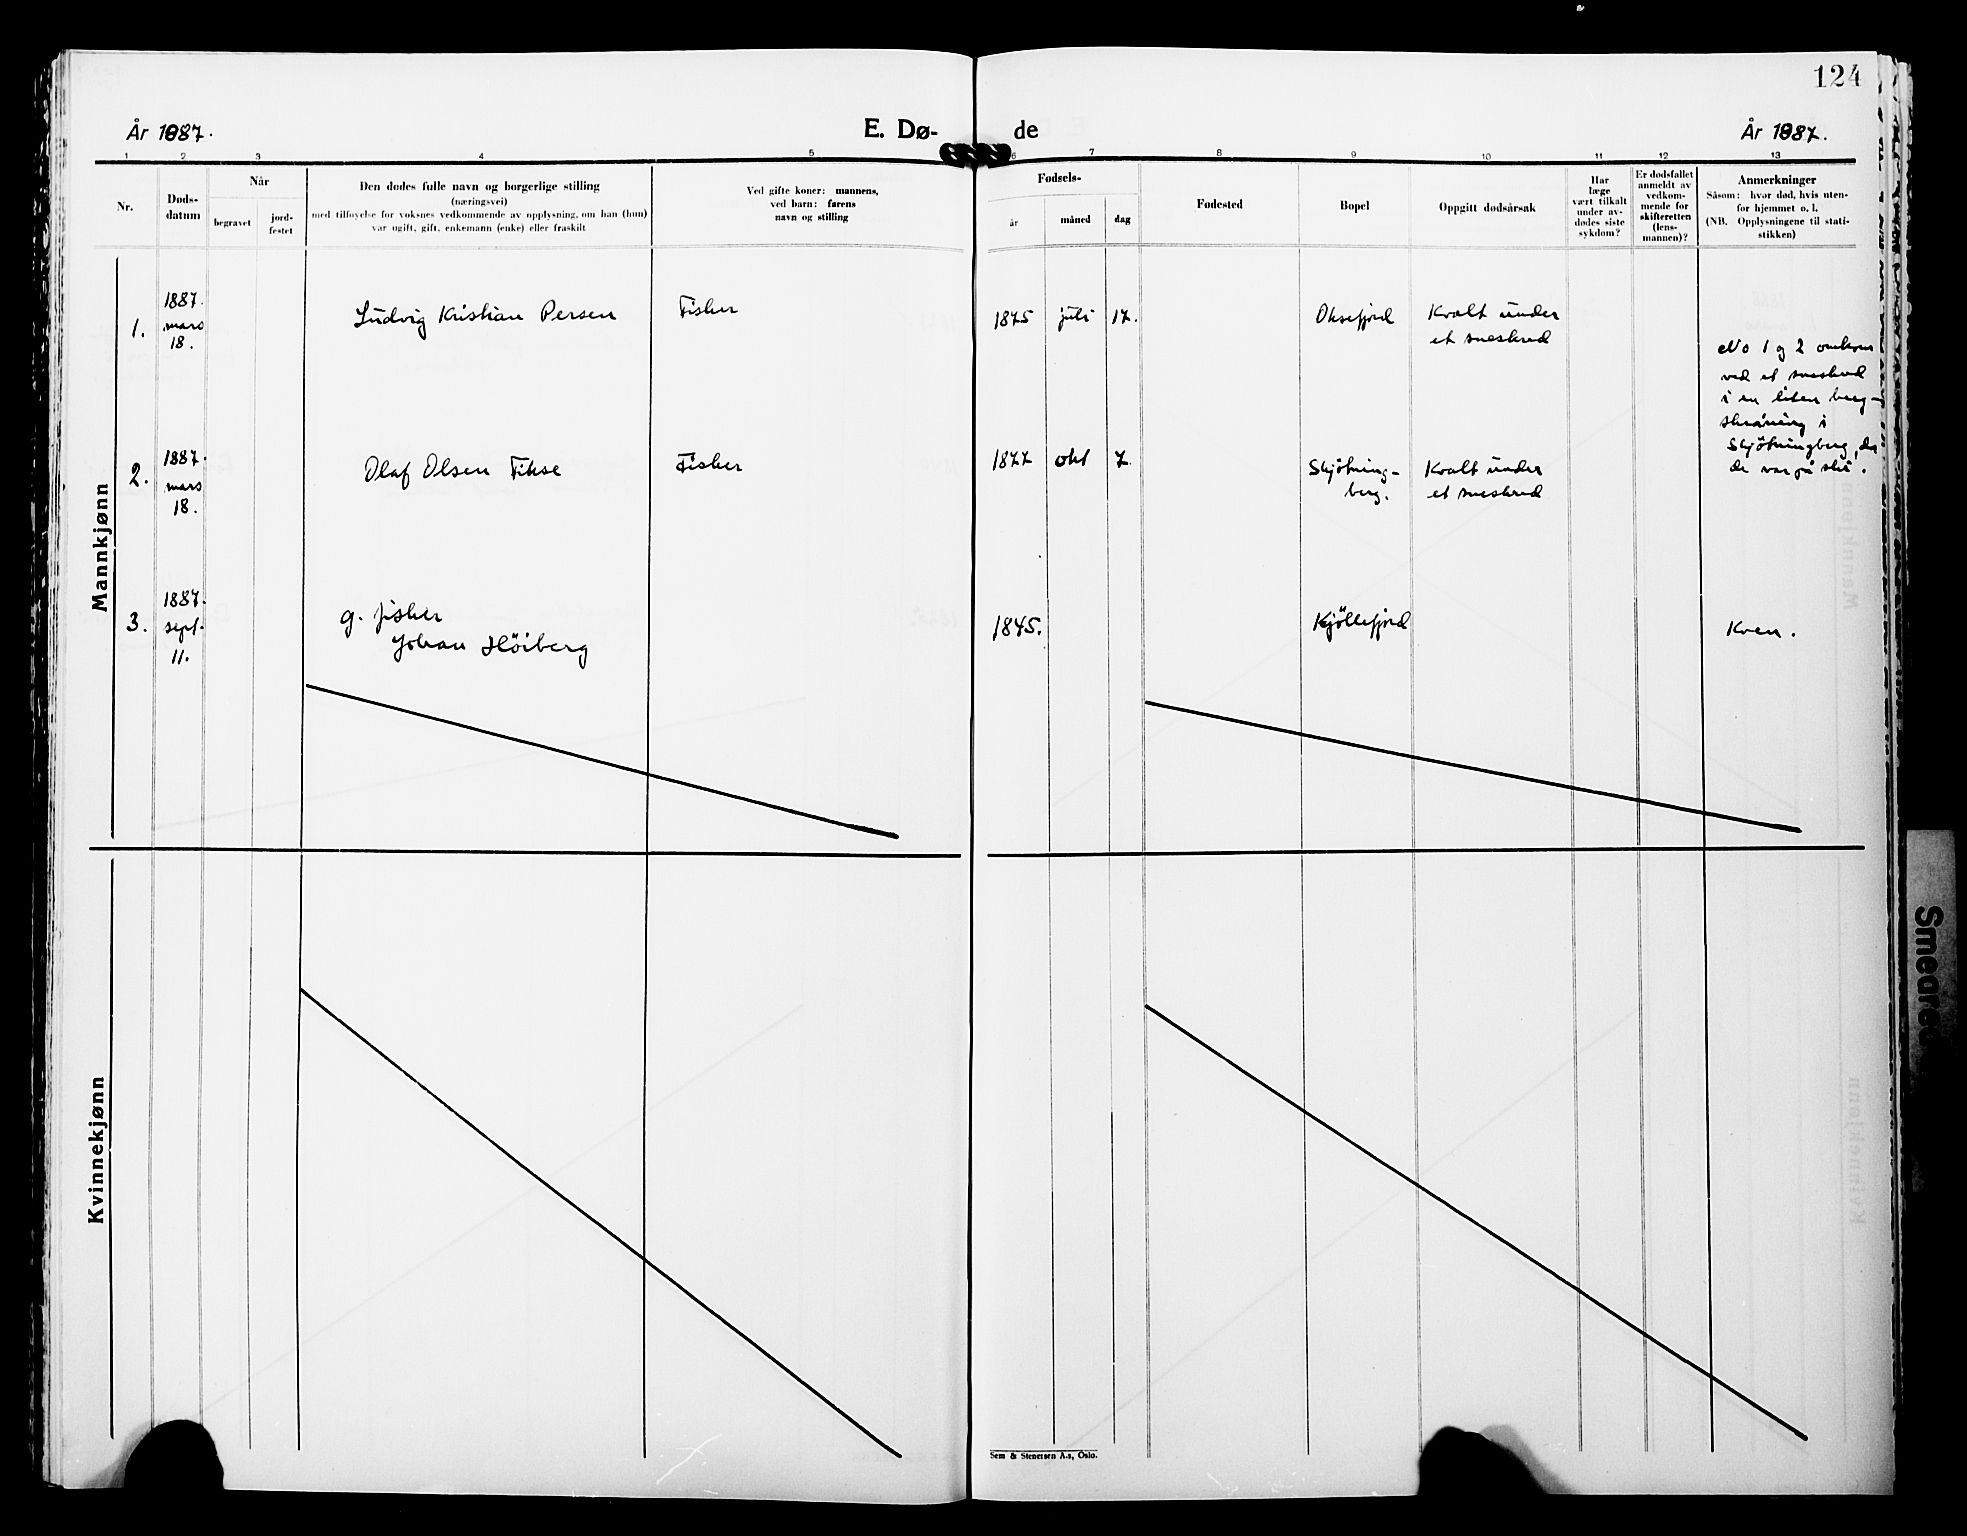 124
År 1887.
E. Dø-
de
År 1887.
1 2 3 4 5 6 7 8 9 10 11 12 13
Nr.
Døds-
datum
Når
begravet
jord-
festet
Den dødes fulle navn og borgerlige stilling
(næringsvei)
med tilføyelse for voksnes vedkommende av opplysning, om han (hun)
var ugift, gift, enkemann (enke) eller fraskilt
Ved gifte koner: mannens,
ved barn: farens
navn og stilling
Fødsels-
år
måned
dag
Fødested
Bopel
Oppgitt dødsårsak
Har
læge
vært tilkalt
under av-
dødes siste
sykdom?
Er dødsfallet
anmeldt av
vedkom-
mende for
skifteretten
(lens-
mannen)?
Anmerkninger
Såsom: hvor død, hvis uten-
for hjemmet o. l.
(NB. Opplysningene til stati-
stikken)
Mannkjønn
1.
1887.
mars
18.
Ludvig Kristian Persen
Fisker
1875 juli 17.
Oksefjord
Kvalt under
et sneskred
No 1 og 2 omkom
ved et sneskred
i en liten berg-
skråning i
Skjötningberg, der
de var på ski.
2.
1887.
mars
18.
Olaf Olsen Fikse
Fisker
1877 okt 7.
Skjötning-
berg.
Kvalt under
et sneskred
3.
1887.
sept.
11.
g. fisker
Johan Höiberg
1845.
Kjöllefjord
Kven.
Kvinnekjønn
Sem & Stenersen A.s, Oslo.